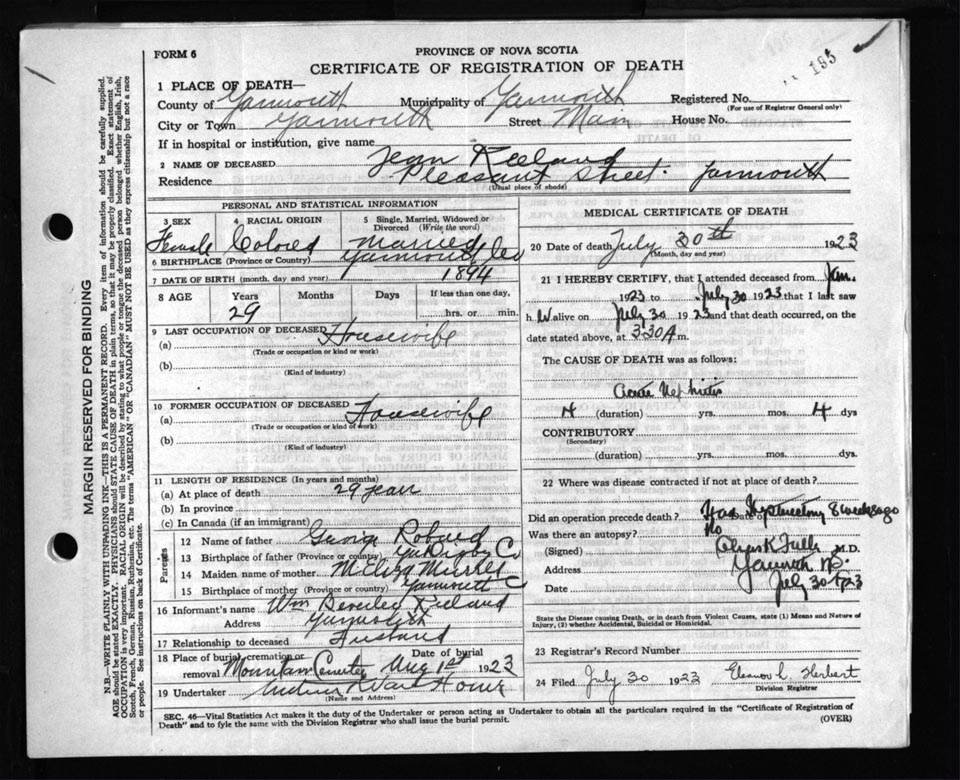 FORM 6
PROVINCE OF NOVA SCOTIA
CERTIFICATE OF REGISTRATION OF DEATH
185
1 PLACE OF DEATH—
County of Yarmouth Municipality of Yarmouth Registered No.
(For use of Registrar General only)
City or Town Yarmouth Street Main House No.
If in hospital or institution, give name
2 NAME OF DECEASED Jean Keeland
Residence Pleasant Street Yarmouth
(Usual place of abode)
PERSONAL AND STATISTICAL INFORMATION
3 SEX
Female
4 RACIAL ORIGIN
Colored
5 Single, Married, Widowed or Divorced (Write the word)
Married
6 BIRTHPLACE (Province or Country) Yarmouth Co
7 DATE OF BIRTH (month, day and year) 1894
8 AGE Years Months Days If less than one day,
29 hrs. or min.
9 LAST OCCUPATION OF DECEASED Housewife
(a)
(Trade or occupation or kind or work)
(b)
(Kind of industry)
10 FORMER OCCUPATION OF DECEASED Housewife
(a)
(Trade or occupation or kind of work)
(b)
(Kind of industry)
11 LENGTH OF RESIDENCE (In years and months)
(a) At place of death 29 years
(b) In province
(c) In Canada (if an immigrant)
Parents
12 Name of father George
13 Birthplace of father (Province or country) Digby Co
14 Maiden name of mother
15 Birthplace of mother (Province or country) Yarmouth C
16 Informant's name Wm Beverley Keeland
Address Yarmouth
17 Relationship to deceased Husband
18 Place of burial, cremation or removal Mountain Cemetery Date of burial Aug 1st 1923
19 Undertaker
(Name and Address)
MEDICAL CERTIFICATE OF DEATH
20 Date of death July 30th 1923
(Month, day and year)
21 I HEREBY CERTIFY, that I attended deceased from Jan.
1923 to July 30 1923 that I last saw
h alive on July 30 1923 and that death occurred, on
date stated above, at 330 A m.
The CAUSE OF DEATH was as follows:
Acute Nephritis
4 (duration) yrs. mos. 4 dys
CONTRIBUTORY
(Secondary)
(duration) yrs. mos. dys.
22 Where was disease contracted if not at place of death?
Did an operation precede death? Had Date of Hysterectomy 8 weeks ago
Was there an autopsy? No
(Signed) M.D.
Address Yarmouth
Date July 30 1923
State the Disease causing Death, or in death from Violent Causes, state (1) Means and Nature of
Injury, (2) whether Accidental, Suicidal or Homicidal.
23 Registrar's Record Number
24 Filed July 30 1923 Eleanor L Herbert
Division Registrar
SEC. 46—Vital Statistics Act makes it the duty of the Undertaker or person acting as Undertaker to obtain all the particulars required in the "Certificate of Registration of
Death" and to fyle the same with the Division Registrar who shall issue the burial permit.
(OVER)
MARGIN RESERVED FOR BINDING
N.B.—WRITE PLAINLY WITH UNFADING INK—THIS IS A PERMANENT RECORD. Every item of information should be carefully supplied.
AGE should be stated EXACTLY. PHYSICIANS should STATE CAUSE OF DEATH in plain terms, so that it may be properly classified. Exact statement of
OCCUPATION is very important. RACIAL ORIGIN will be described by stating to what people or tongue the deceased person belonged whether English, Irish,
Scotch, French, German, Russian, Ruthenian, etc. The terms "AMERICAN" OR "CANADIAN" MUST NOT BE USED as they express citizenship but not a race
or people. See instructions on back of Certificate.